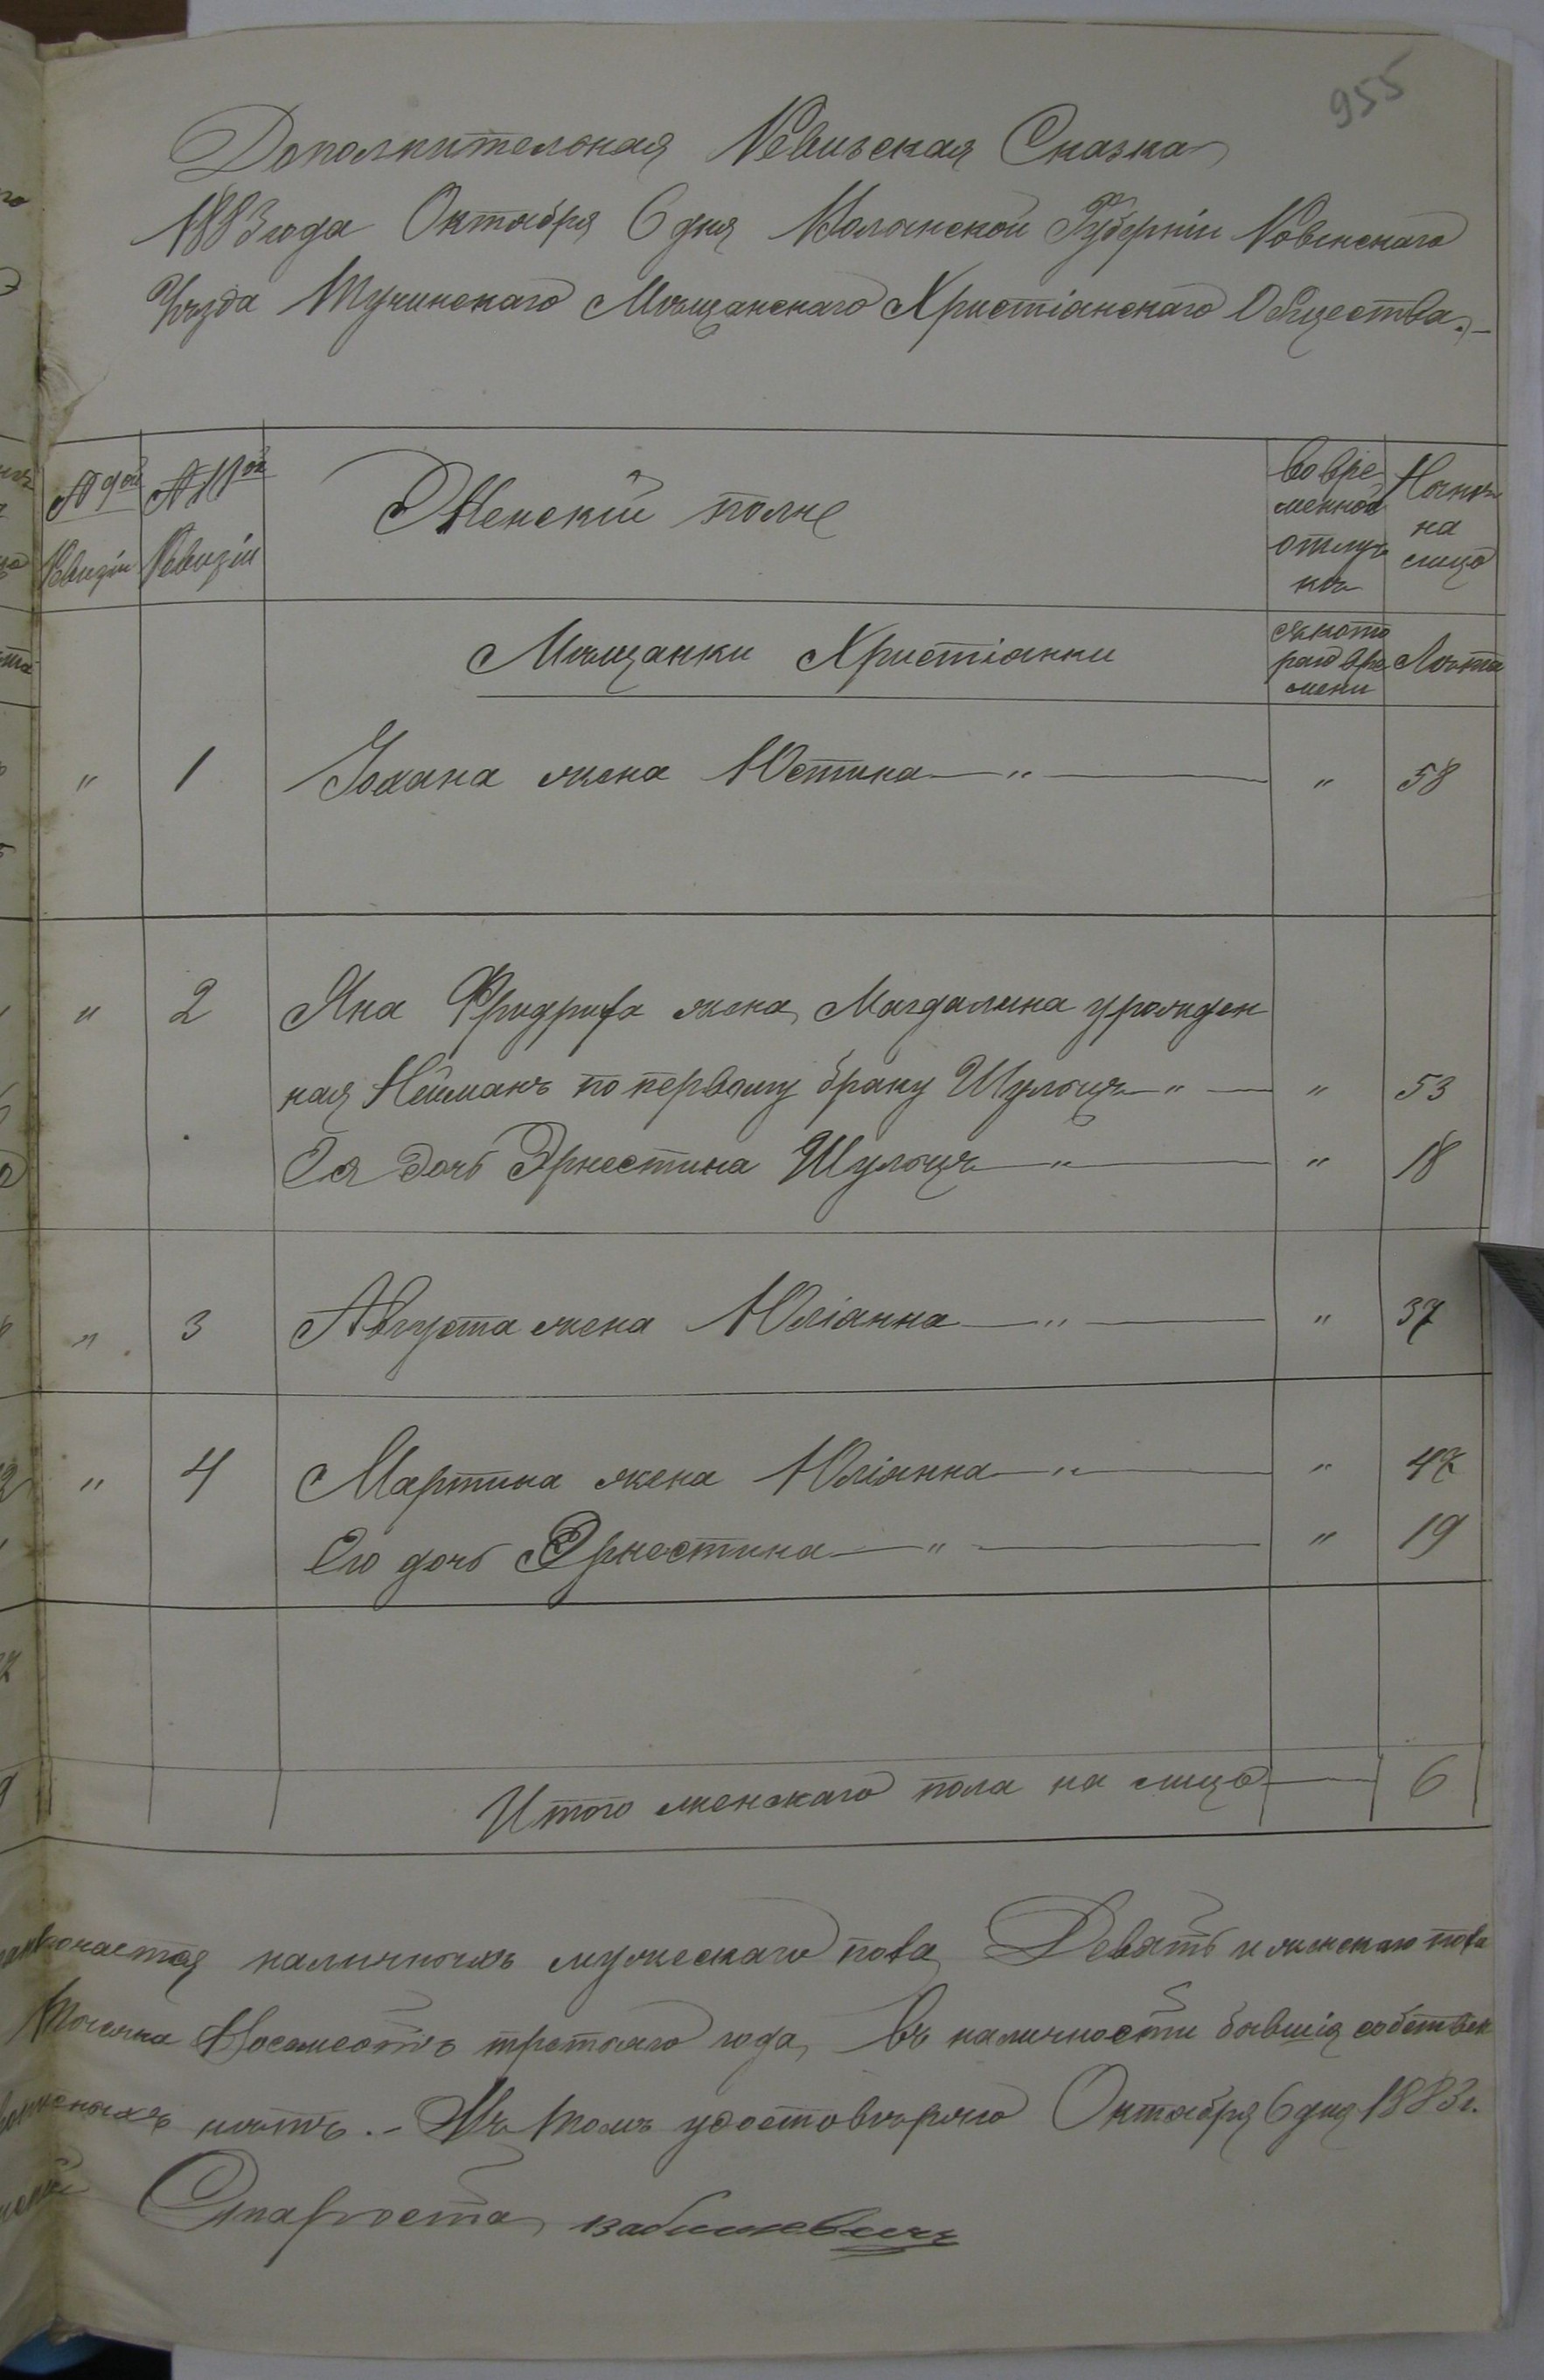 955
Дополнительная Ревизская Сказка
1883 года Октября 6 дня Волынской Губерніи Ровенскаго
Уѣзда Тучинскаго Мѣщанскаго Христіанскаго Общества.
№ 9ой Ревизіи
№ 10ой Ревизіи
Женскій полъ
Во вре-
менной
отлуч-
кѣ
Нынѣ
на
лицо
Мѣщанки Христіанки
съ кото
раго вре
мени
Лѣта
" 1 Іогана жена Юстина — " — " 58
" 2 Яна Фридриха жена Магдалина урожден
ная Нейманъ по первому браку Шульцъ — " — " 53
Ея дочь Эрнестина Шульцъ — " — " 18
" 3 Августа жена Юліанна — " — " 37
" 4 Мартина жена Юліанна — " — " 47
Его дочь Эрнестина — " — " 19
Итого женскаго пола на лицо — 6
наличныхъ мужескаго пола Девять и женскаго пола
Тысяча Восемсотъ третьяго года, въ наличности бывшія собствен
нѣтъ. – Въ томъ удостовѣряю Октября 6 дня 1883 г.
Староста